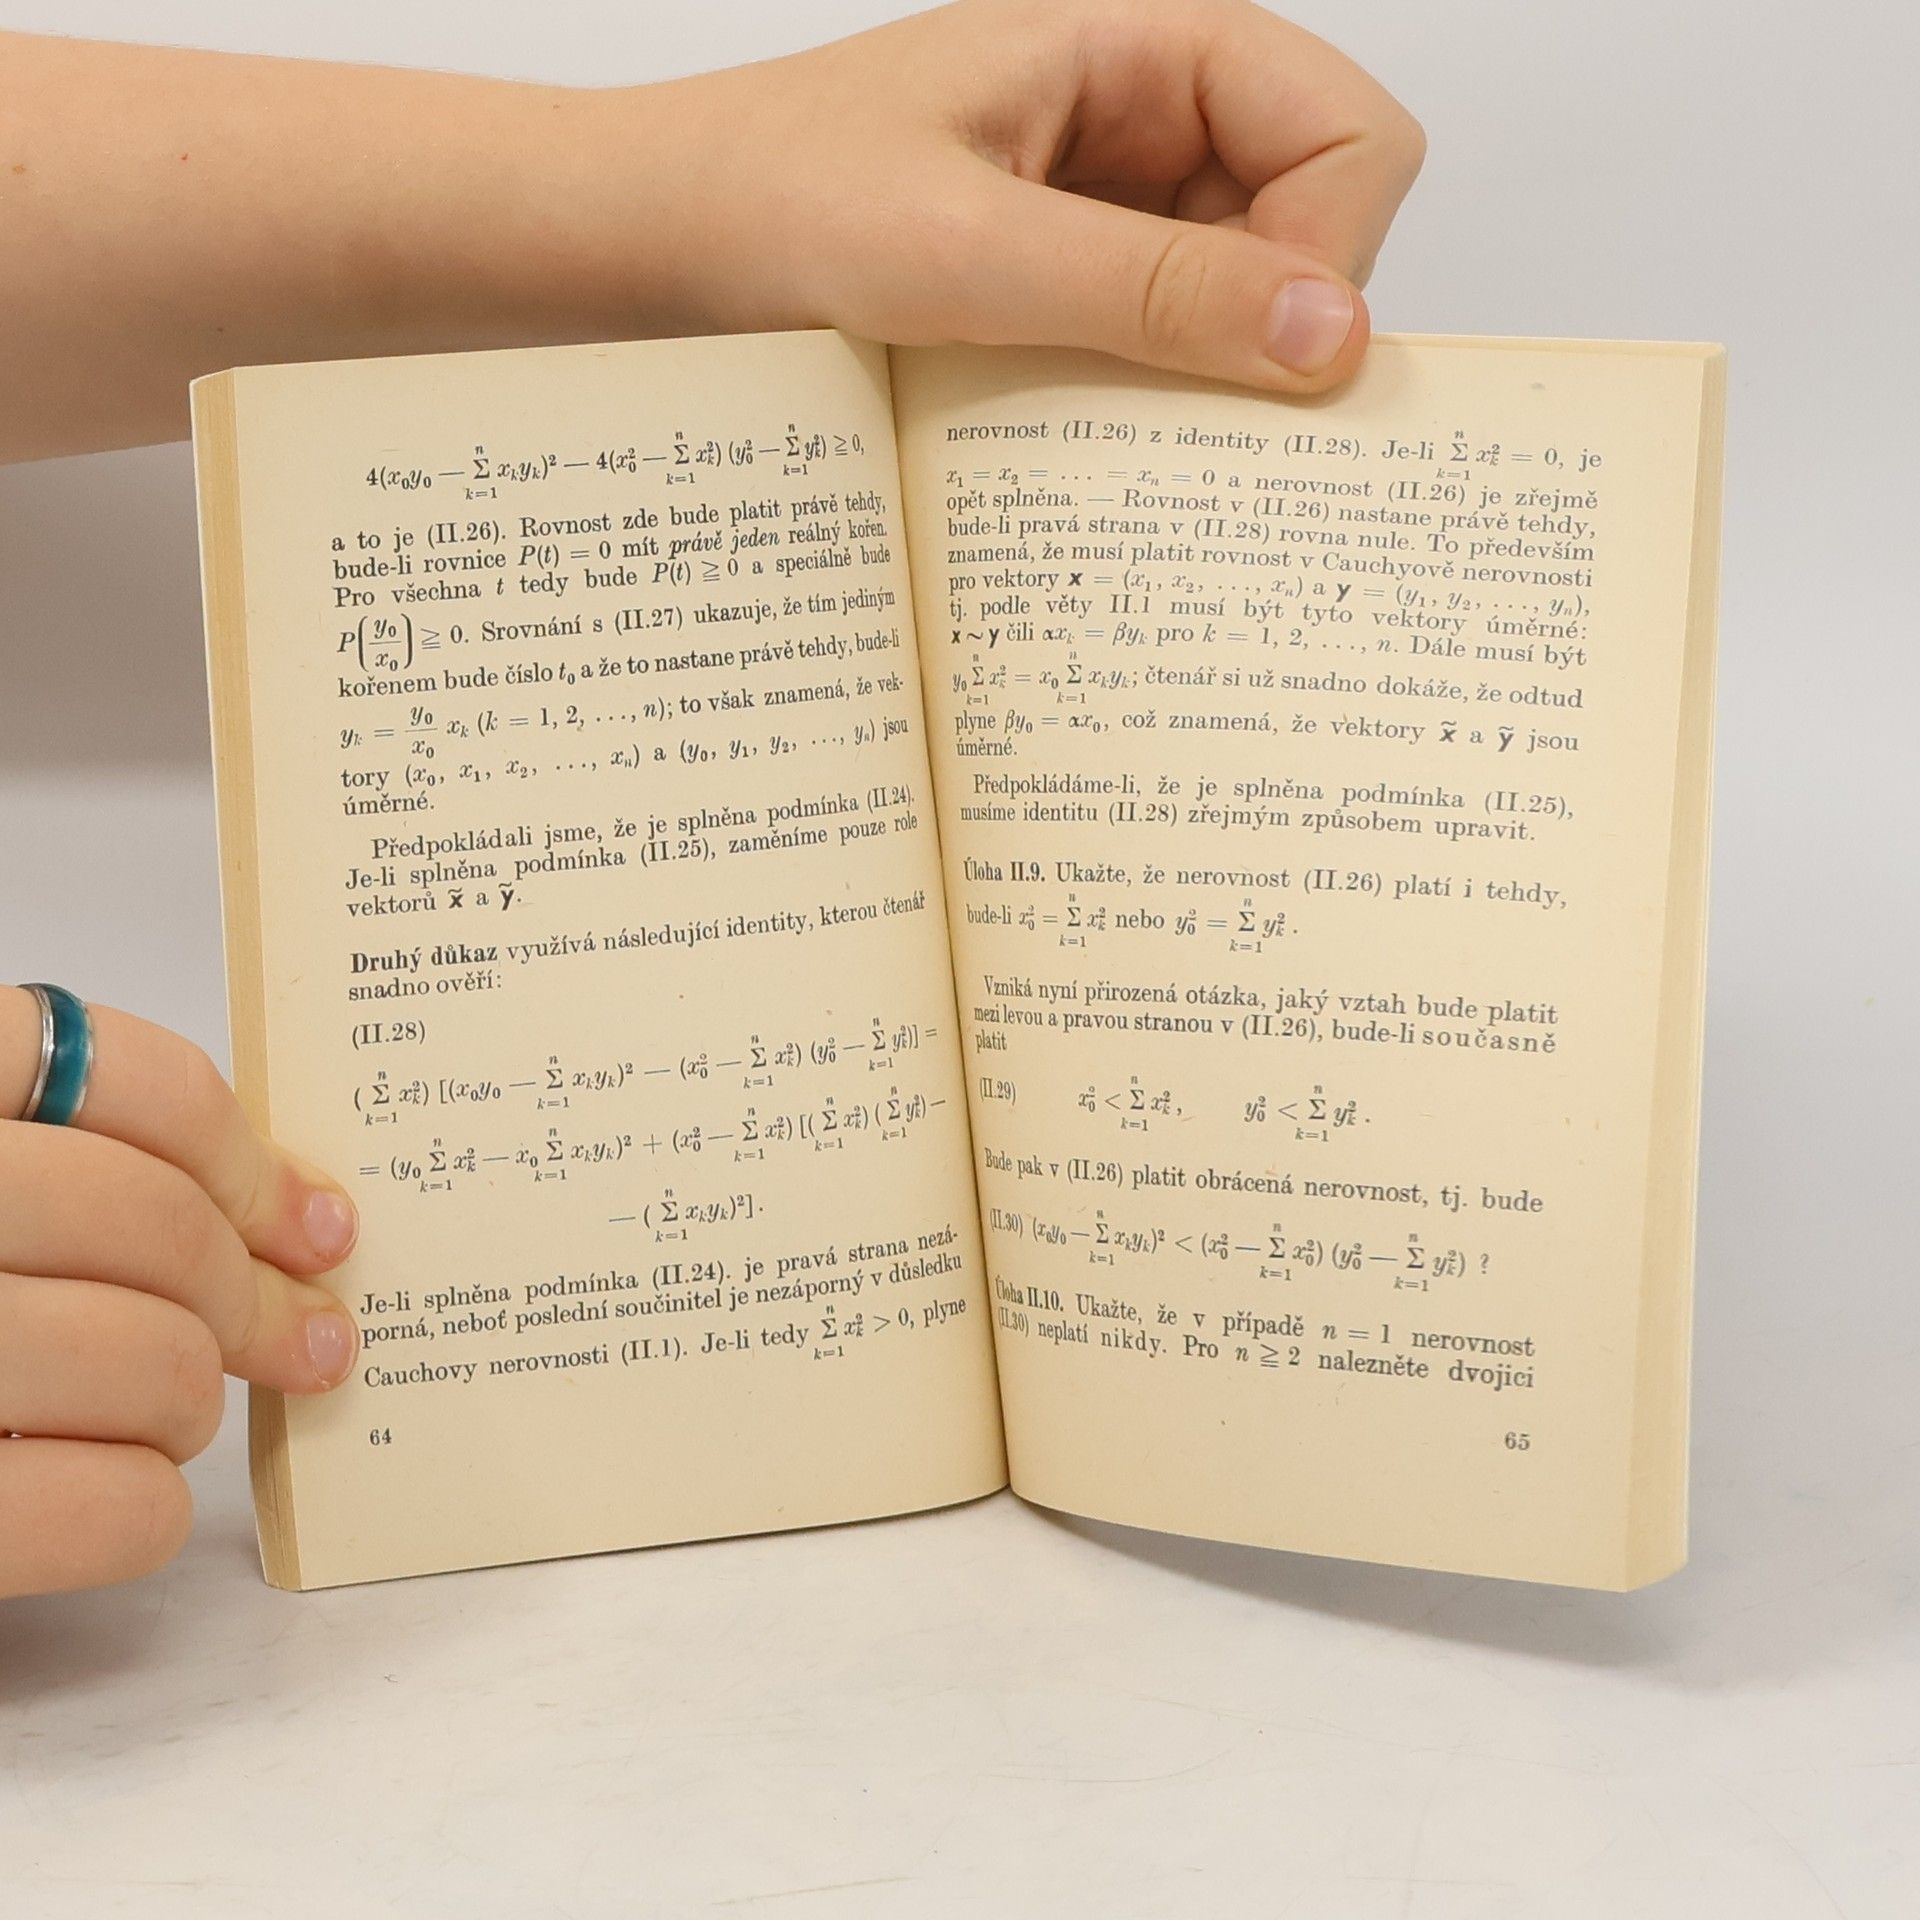 4(x₀y₀ — Σₖ₌₁ⁿ xₖyₖ)² — 4(x₀² — Σₖ₌₁ⁿ xₖ²) (y₀² — Σₖ₌₁ⁿ yₖ²) ≧ 0,
a to je (II.26). Rovnost zde bude platit právě tehdy,
bude-li rovnice P(t) = 0 mít právě jeden reálný kořen.
Pro všechna t tedy bude P(t) ≧ 0 a speciálně bude
P(y₀/x₀) ≧ 0. Srovnání s (II.27) ukazuje, že tím jediným
kořenem bude číslo t₀ a že to nastane právě tehdy, bude-li
yₖ = y₀/x₀ xₖ (k = 1, 2, ..., n); to však znamená, že vek-
tory (x₀, x₁, x₂, ..., xₙ) a (y₀, y₁, y₂, ..., yₙ) jsou
úměrné.
Předpokládali jsme, že je splněna podmínka (II.24).
Je-li splněna podmínka (II.25), zaměníme pouze role
vektorů x̃ a ỹ.
Druhý důkaz využívá následující identity, kterou čtenář
snadno ověří:
(II.28)
( Σₖ₌₁ⁿ xₖ²) [(x₀y₀ — Σₖ₌₁ⁿ xₖyₖ)² — (x₀² — Σₖ₌₁ⁿ xₖ²) (y₀² — Σₖ₌₁ⁿ yₖ²)] =
= (y₀ Σₖ₌₁ⁿ xₖ² — x₀ Σₖ₌₁ⁿ xₖyₖ)² + (x₀² — Σₖ₌₁ⁿ xₖ²) [( Σₖ₌₁ⁿ xₖ²) ( Σₖ₌₁ⁿ yₖ²) —
— ( Σₖ₌₁ⁿ xₖyₖ)²].
Je-li splněna podmínka (II.24). je pravá strana nezá-
porná, neboť poslední součinitel je nezáporný v důsledku
Cauchovy nerovnosti (II.1). Je-li tedy Σₖ₌₁ⁿ xₖ² > 0, plyne
64
nerovnost (II.26) z identity (II.28). Je-li Σₖ₌₁ⁿ xₖ² = 0, je
x₁ = x₂ = ... = xₙ = 0 a nerovnost (II.26) je zřejmě
opět splněna. — Rovnost v (II.26) nastane právě tehdy,
bude-li pravá strana v (II.28) rovna nule. To především
znamená, že musí platit rovnost v Cauchyově nerovnosti
pro vektory x = (x₁, x₂, ..., xₙ) a y = (y₁, y₂, ..., yₙ),
tj. podle věty II.1 musí být tyto vektory úměrné:
x ~ y čili αxₖ = βyₖ pro k = 1, 2, ..., n. Dále musí být
y₀ Σₖ₌₁ⁿ xₖ² = x₀ Σₖ₌₁ⁿ xₖyₖ; čtenář si už snadno dokáže, že odtud
plyne βy₀ = αx₀, což znamená, že vektory x̃ a ỹ jsou
úměrné.
Předpokládáme-li, že je splněna podmínka (II.25),
musíme identitu (II.28) zřejmým způsobem upravit.
Úloha II.9. Ukažte, že nerovnost (II.26) platí i tehdy,
bude-li x₀² = Σₖ₌₁ⁿ xₖ² nebo y₀² = Σₖ₌₁ⁿ yₖ².
Vzniká nyní přirozená otázka, jaký vztah bude platit
mezi levou a pravou stranou v (II.26), bude-li současně
platit
(II.29) x₀² < Σₖ₌₁ⁿ xₖ², y₀² < Σₖ₌₁ⁿ yₖ².
Bude pak v (II.26) platit obrácená nerovnost, tj. bude
(II.30) (x₀y₀ — Σₖ₌₁ⁿ xₖyₖ)² < (x₀² — Σₖ₌₁ⁿ x₀²) (y₀² — Σₖ₌₁ⁿ yₖ²) ?
Úloha II.10. Ukažte, že v případě n = 1 nerovnost
(II.30) neplatí nikdy. Pro n ≧ 2 nalezněte dvojici
65